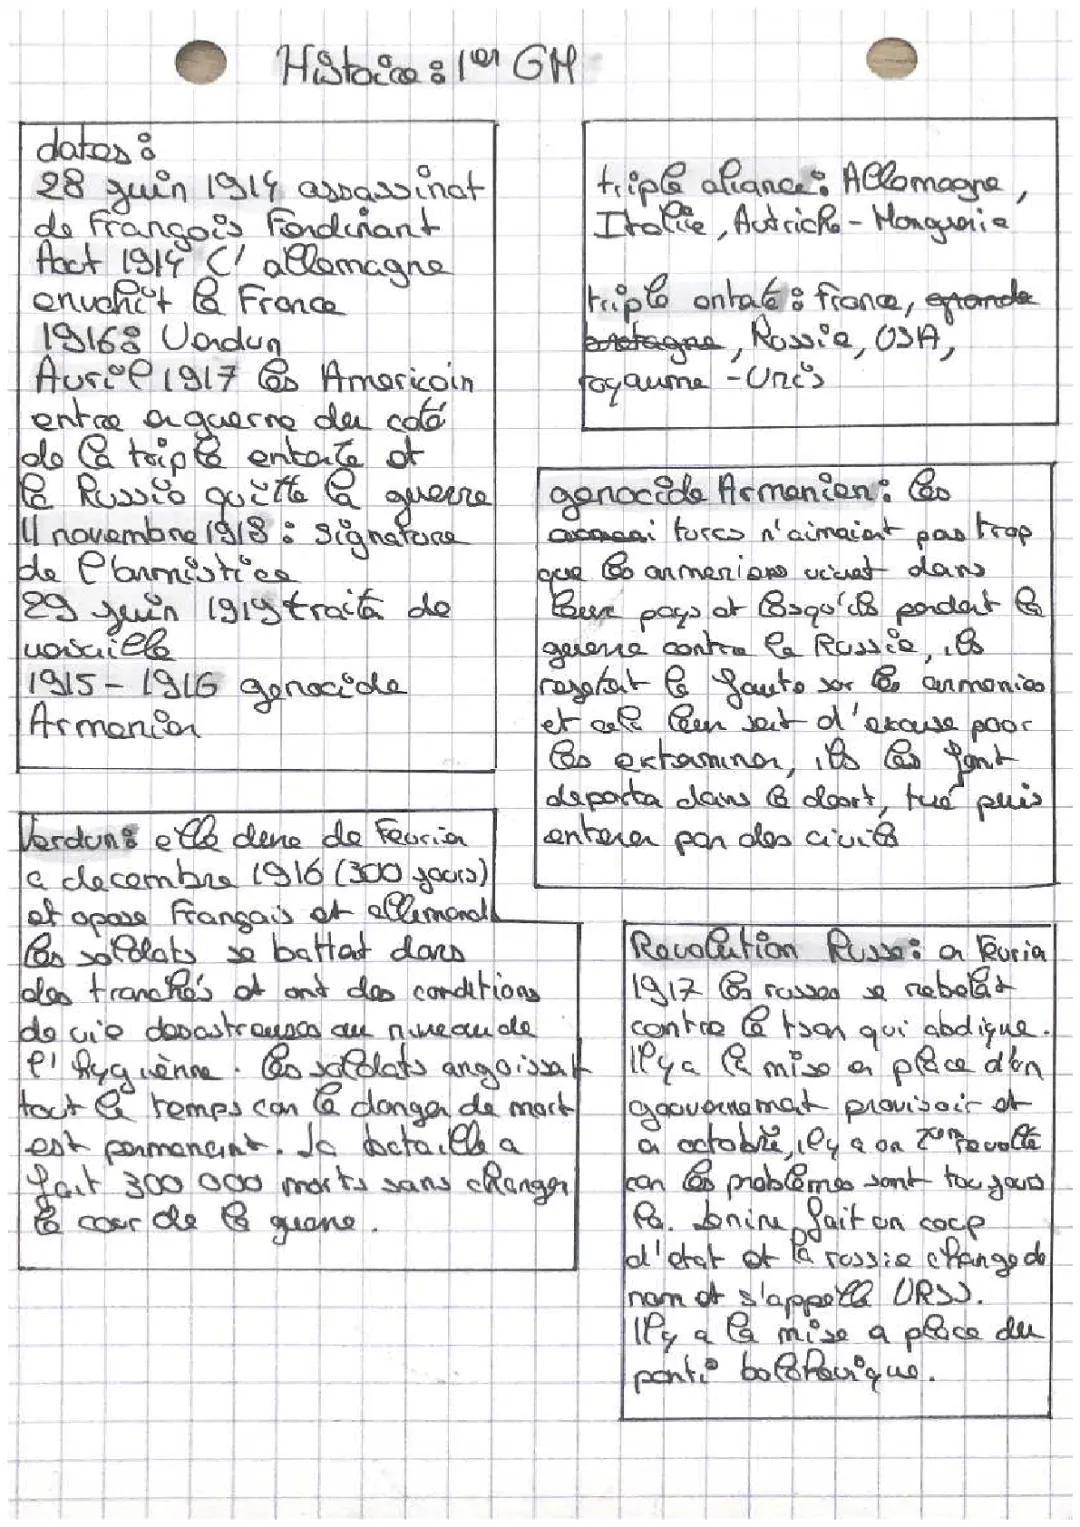 Histoire : 1er GM
dates :
28 juin 1914 assassinat
de François Ferdinant
Aout 1914 l'allemagne
envahit la France
1916 : Verdun
Avril 1917 les Americain
entre en guerre du coté
de la triple entente et
la Russie quitte la guerre
11 novembre 1918 : signature
de l'armistice
29 juin 1919 traité de
versaille
1915 - 1916 genocide
Armenien
Verdun : elle dure de Fevrier
a decembre 1916 (300 jours)
et opose Français et allemand
les soldats se battent dans
des tranchés et ont des conditions
de vie desastreuses au niveau de
l'hygiènne. les soldats angoissent
tout le temps car le danger de mort
est permanant. la bataille a
fait 300 000 morts sans changer
le cour de la guerre.
triple aliance : Allemagne,
Italie, Autriche - Hongrerie
triple entate : france, grande
bretagne, Russie, USA,
royaume - Unis
genocide Armenien : les
turcs n'aimaient pas trop
que les armeniens vivent dans
leur pays et lorsqu'ils perdent la
guerre contre la Russie, ils
rejetent la faute sur les armenies
et cela leur sert d'excuse pour
les exterminer, ils les font
deporta dans le desert, tué puis
enterer par des civils
Revolution Russe : en Fevrier
1917 les russes se rebelent
contre le tsar qui abdique.
Il y a la mise en place d'un
gouvernemat provisoir et
en octobre, il y a un 2eme revolte
car les problemes sont toujours
la. Lenine fait un coup
d'etat et la russie change de
nom et s'appelle URSS.
Il y a la mise a place du
parti bolchevique.